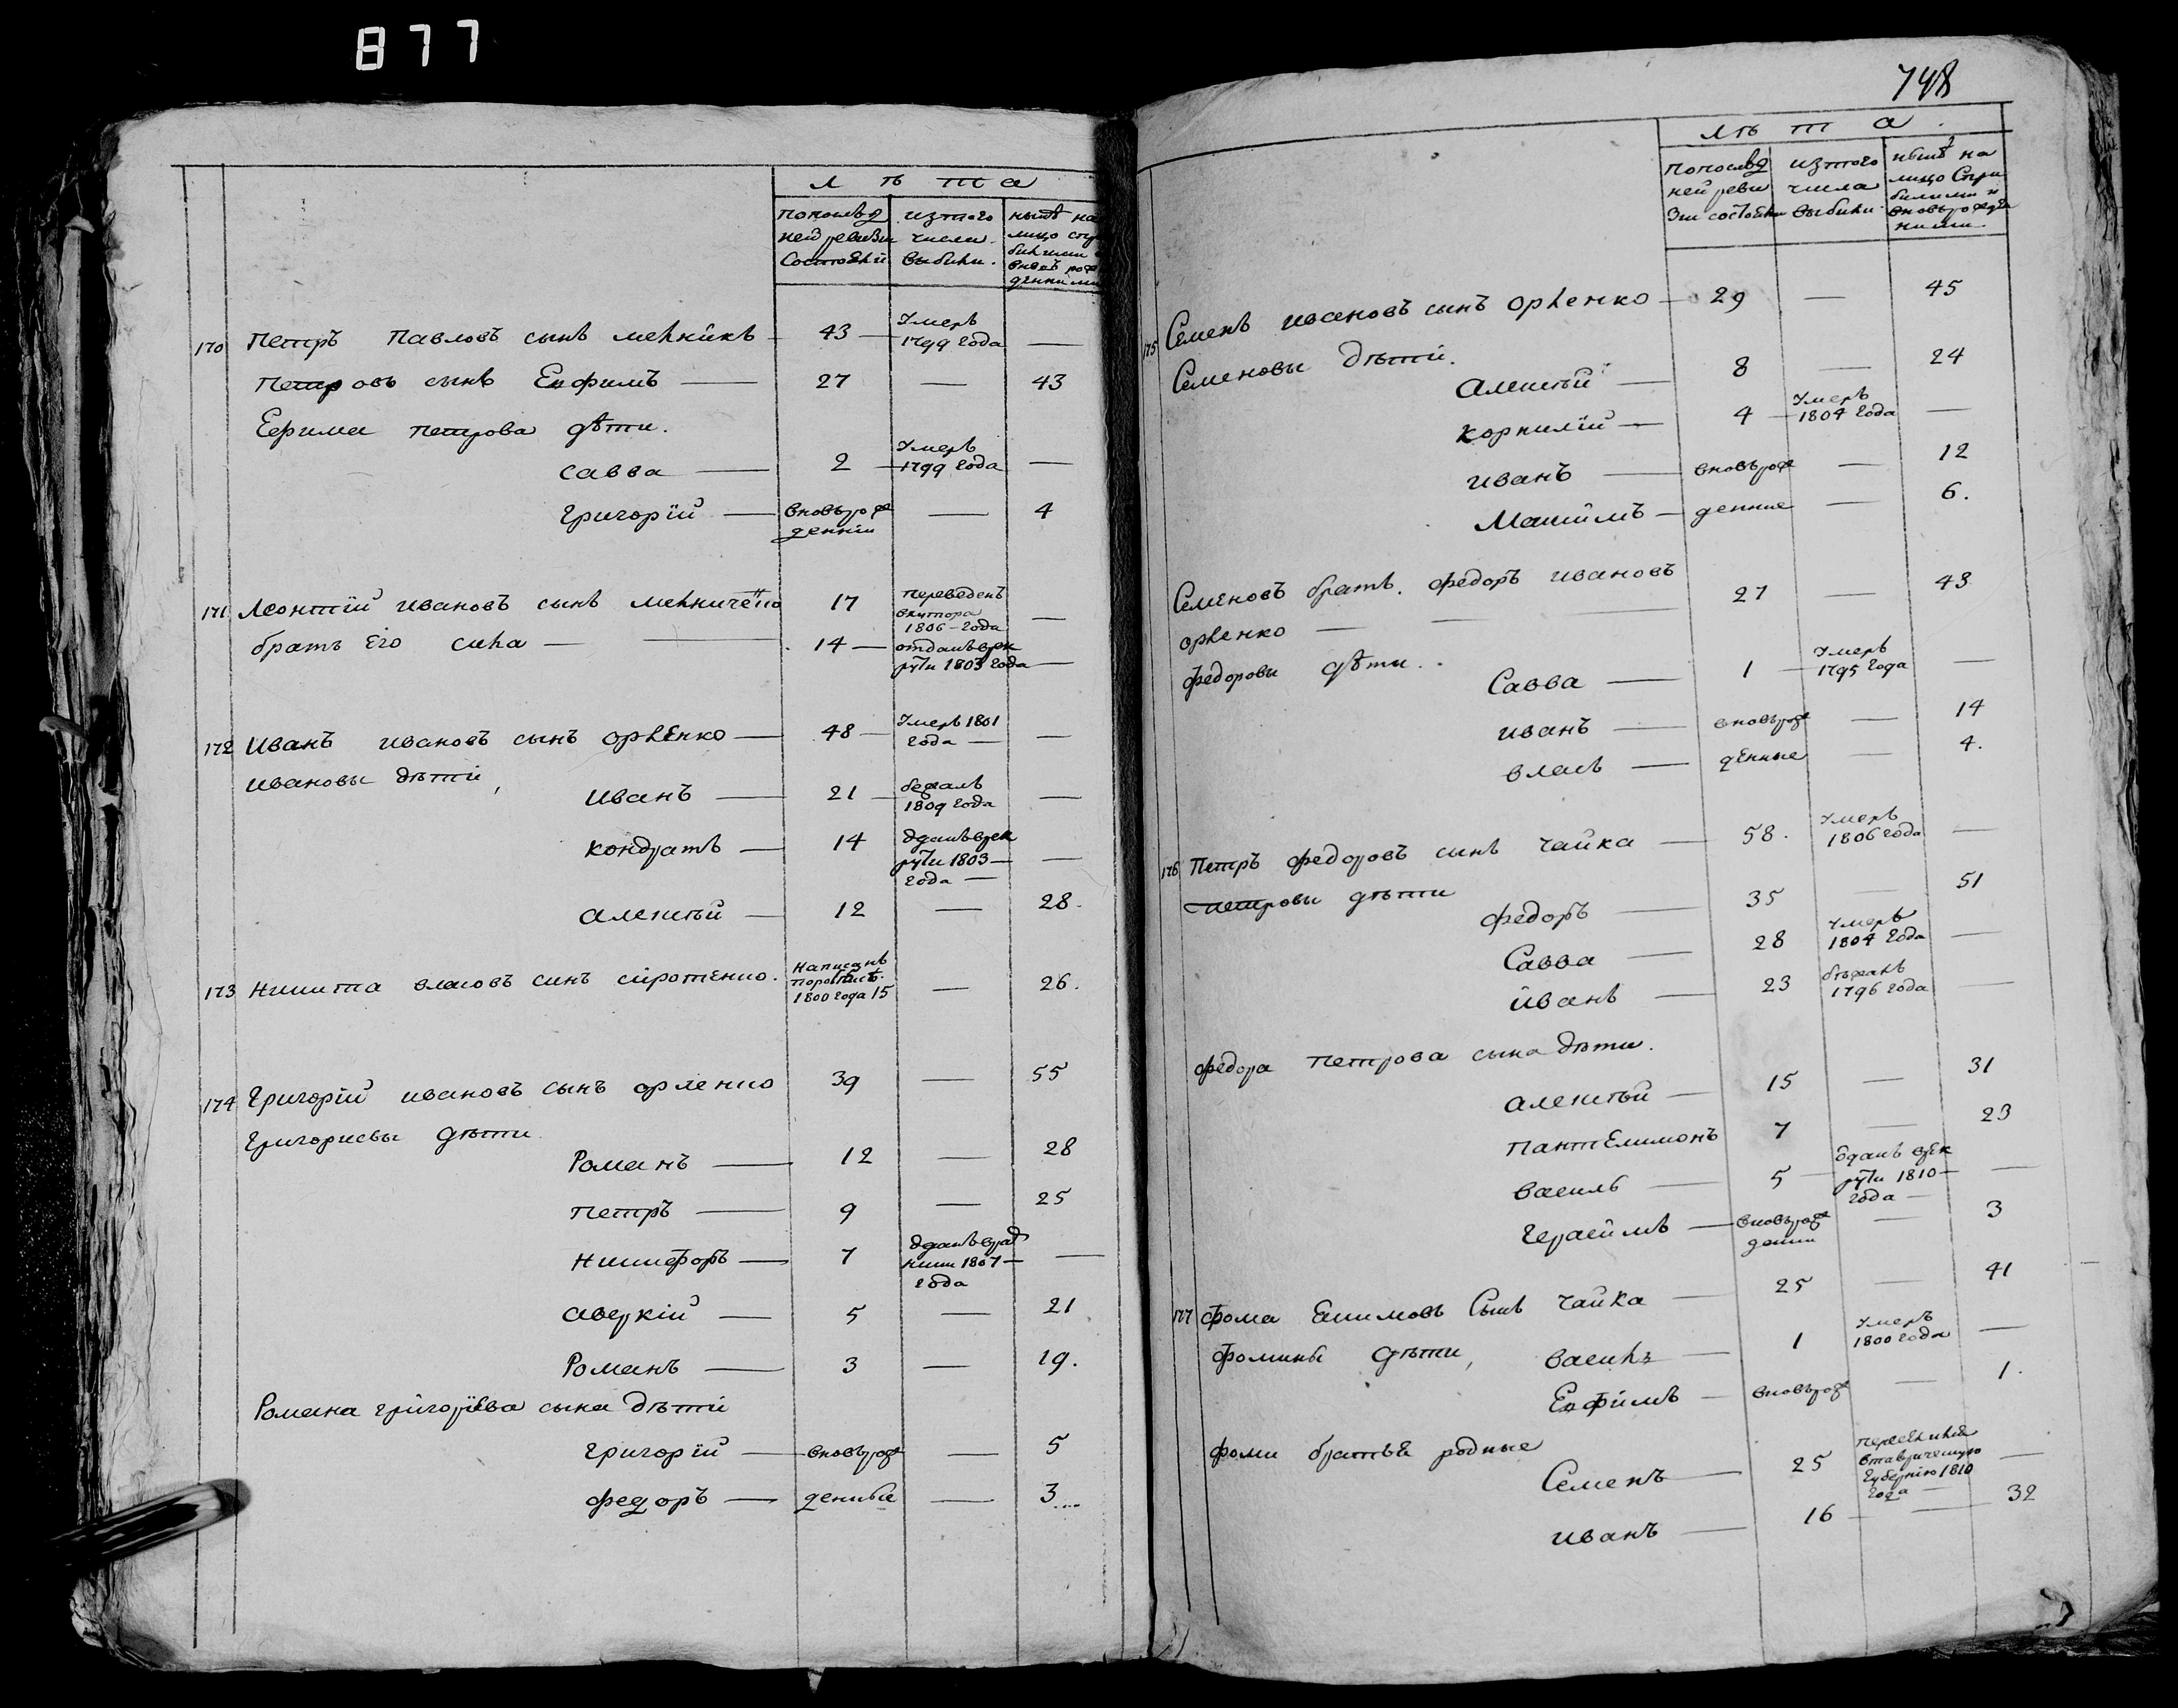 877
лѣта
попослѣд ней ревизіи состояли
изтого числа выбыли.
нынѣ на лицо
170 Петръ Павловъ сынъ мелникъ — 43 — умеръ 1799 года —
Петровъ сынъ Ефимъ — 27 — 43
Ефима петрова дѣти.
савва — 2 — умеръ 1799 года —
григорій — вновьрож денній — 4
171 Леонтій ивановъ сынъ мелниченко 17 переведенъ 1806 года —
братъ Его сила — 14 — отданъ врек руты 1803 года —
172 Иванъ ивановъ сынъ орленко — 48 — умеръ 1801 года — —
ивановы дѣти,
иванъ — 21 — бежалъ 1809 года —
кондратъ — 14 отданъ врек руты 1803 — года — —
алексѣй — 12 — 28.
173 никита власовъ синъ сиротенко. написанъ 1800 года 15 — 26.
174 григорій ивановъ сынъ орленко 39 — 55
григориевы дѣти
Романъ — 12 — 28
петръ — 9 — 25
никифоръ — 7 1807 — года —
аверкій — 5 — 21
Романъ — 3 — 19.
Романа григоріева сына дѣти
григорій — вновьрож — 5
федоръ — денные — 3
748
лѣта.
попослѣд ней реви зіи состояли
изтого числа выбыли.
нынѣ на лицо Спри былыми и вновьрожде ними.
175 Семенъ ивановъ сынъ орленко — 29 — 45
Семеновы дѣти.
алексѣй — 8 — 24
корнилій — 4 — умеръ 1804 года —
иванъ — вновьрож — 12
Максимъ — денние — 6.
Семеновъ братъ. федоръ ивановъ
орленко — — 27 — 43
федоровы дѣти.
Савва — 1 — умеръ 1795 года —
иванъ — вновьрож — 14
власъ — денные — 4.
176 Петръ федоровъ сынъ чайка — 58. умеръ 1806 года —
петровы дѣти
федоръ — 35 — 51
Савва — 28 умеръ 1804 года —
иванъ — 23 бѣжалъ 1796 года —
федора петрова сына дѣти.
алексѣй — 15 — 31
пантЕлимонъ 7 — 23
василь — 5 — отданъ врек руты 1810 — года — —
герасимъ — вновьрож денни — 3
177 фома Екимовъ Сынъ чайка — 25 — 41
фомины дѣти, василь — 1 умеръ 1800 года —
Ефимъ — вновьрож — 1.
фомы братья родные
Семенъ — 25 втаврическую губернію 1810 года — —
иванъ — 16 — 32